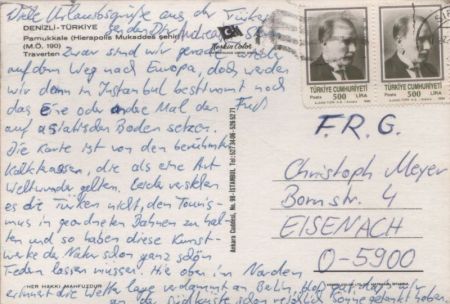 Viele Urlaubsgrüße aus der Türkei
DENIZLI-TÜRKIYE
Pamukkale (Hierapolis Mukaddes şehir)
(M.Ö. 190)
Traverten
Keskin Color
zwar sind wir gerade
auf dem Weg nach Europa, doch werden
wir denn in Istanbul bestimmt noch
das Eine oder andre Mal den Fuß
auf asiatischen Boden setzen.
Die Karte ist von den berühmten
Kalkterrassen, die als eine Art
Weltwunder gelten. Leider verstehen
es die Türken nicht, den Touris-
mus in geordneten Bahnen zu hal-
ten und so haben diese Kunst-
werke der Natur schon ganz schön
Federn lassen müssen. Hier oben im Norden
erinnert die Wetterlage verdammt an Berlin,
an der Südküste
HER HAKKI MAHFUZDUR
Ankara Caddesi, No. 98-İSTANBUL Tel: 527 34 06 - 526 52 71
TÜRKİYE CUMHURİYETİ
Posta 500 LİRA
TÜRKİYE CUMHURİYETİ
Posta 500 LİRA
F.R.G.
Christoph Meyer
Bornstr. 4
EISENACH
O-5900